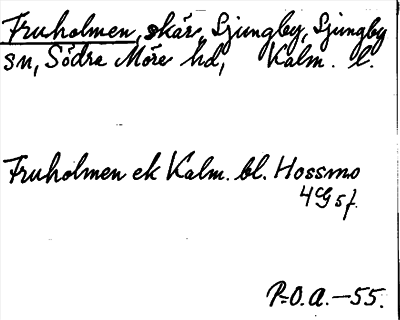 Fruholmen, skär, Ljungby, Ljungby
sn, Södra Möre hd, Kalm. l.
Fruholmen ek Kalm. bl. Hossmo
4Gsf.
P-O.A.-55.